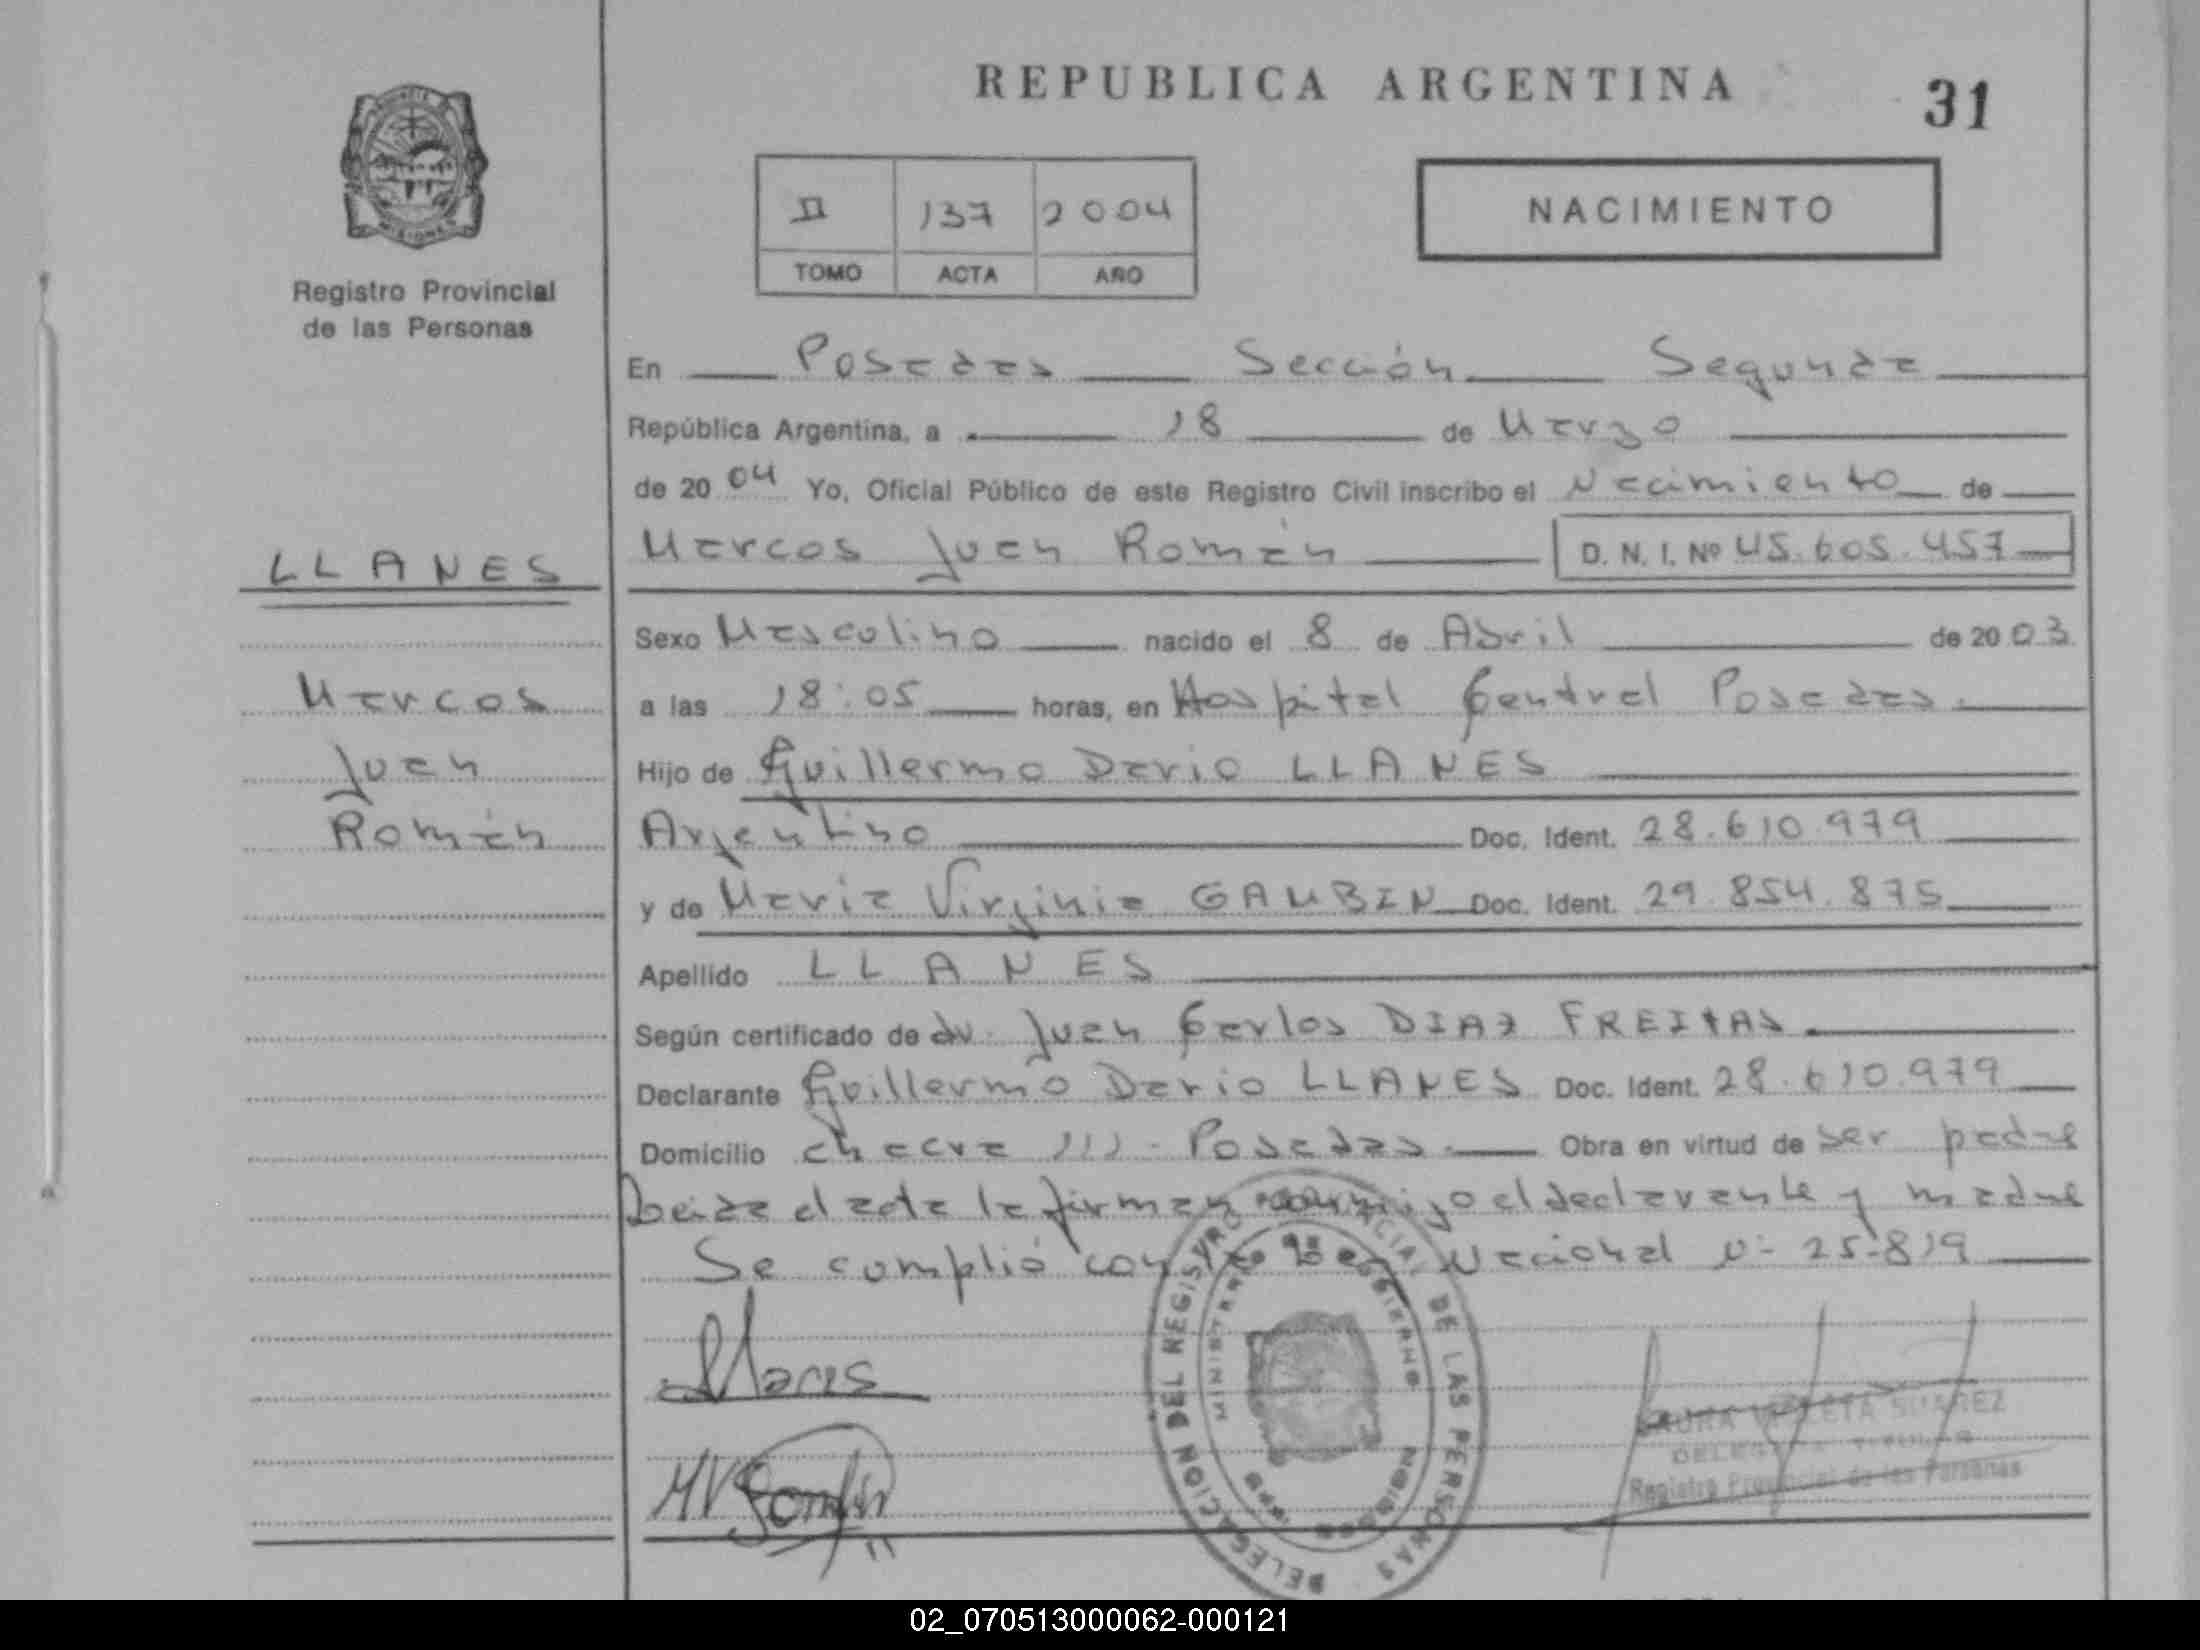 REPUBLICA ARGENTINA
31
PROVINCIA DE
MISIONES
Registro Provincial
de las Personas
II 137 2004
TOMO ACTA AÑO
NACIMIENTO
En Posadas Sección Segunda
República Argentina, a 18 de Marzo
de 2004 Yo, Oficial Público de este Registro Civil inscribo el Nacimiento de
LLANES
Marcos Juan Román D. N. I. Nº 45.605.457
Sexo Masculino nacido el 8 de Abril de 2003
Marcos
a las 18:05 horas, en Hospital Central Posadas.
Juan
Hijo de Guillermo Dario LLANES
Román
Argentino Doc. Ident. 28.610.979
y de Maria Virginia GAMBIN Doc. Ident. 29.854.875
Apellido LLANES
Según certificado de dr. Juan Carlos DIAZ FREITAS.
Declarante Guillermo Dario LLANES Doc. Ident. 28.610.979
Domicilio chacra 111 - Posadas. Obra en virtud de ser padre
Leida el acta la firman conmigo el declarante y madre
Se cumplió con la Ley Nacional Nº 25.819
Llanes
MVGambin
DELEGACION DEL REGISTRO PROVINCIAL DE LAS PERSONAS
MINISTERIO DE GOBIERNO
MISIONES
LAURA VIOLETA SUAREZ
DELEGADA TITULAR
Registro Provincial de las Personas
02_070513000062-000121